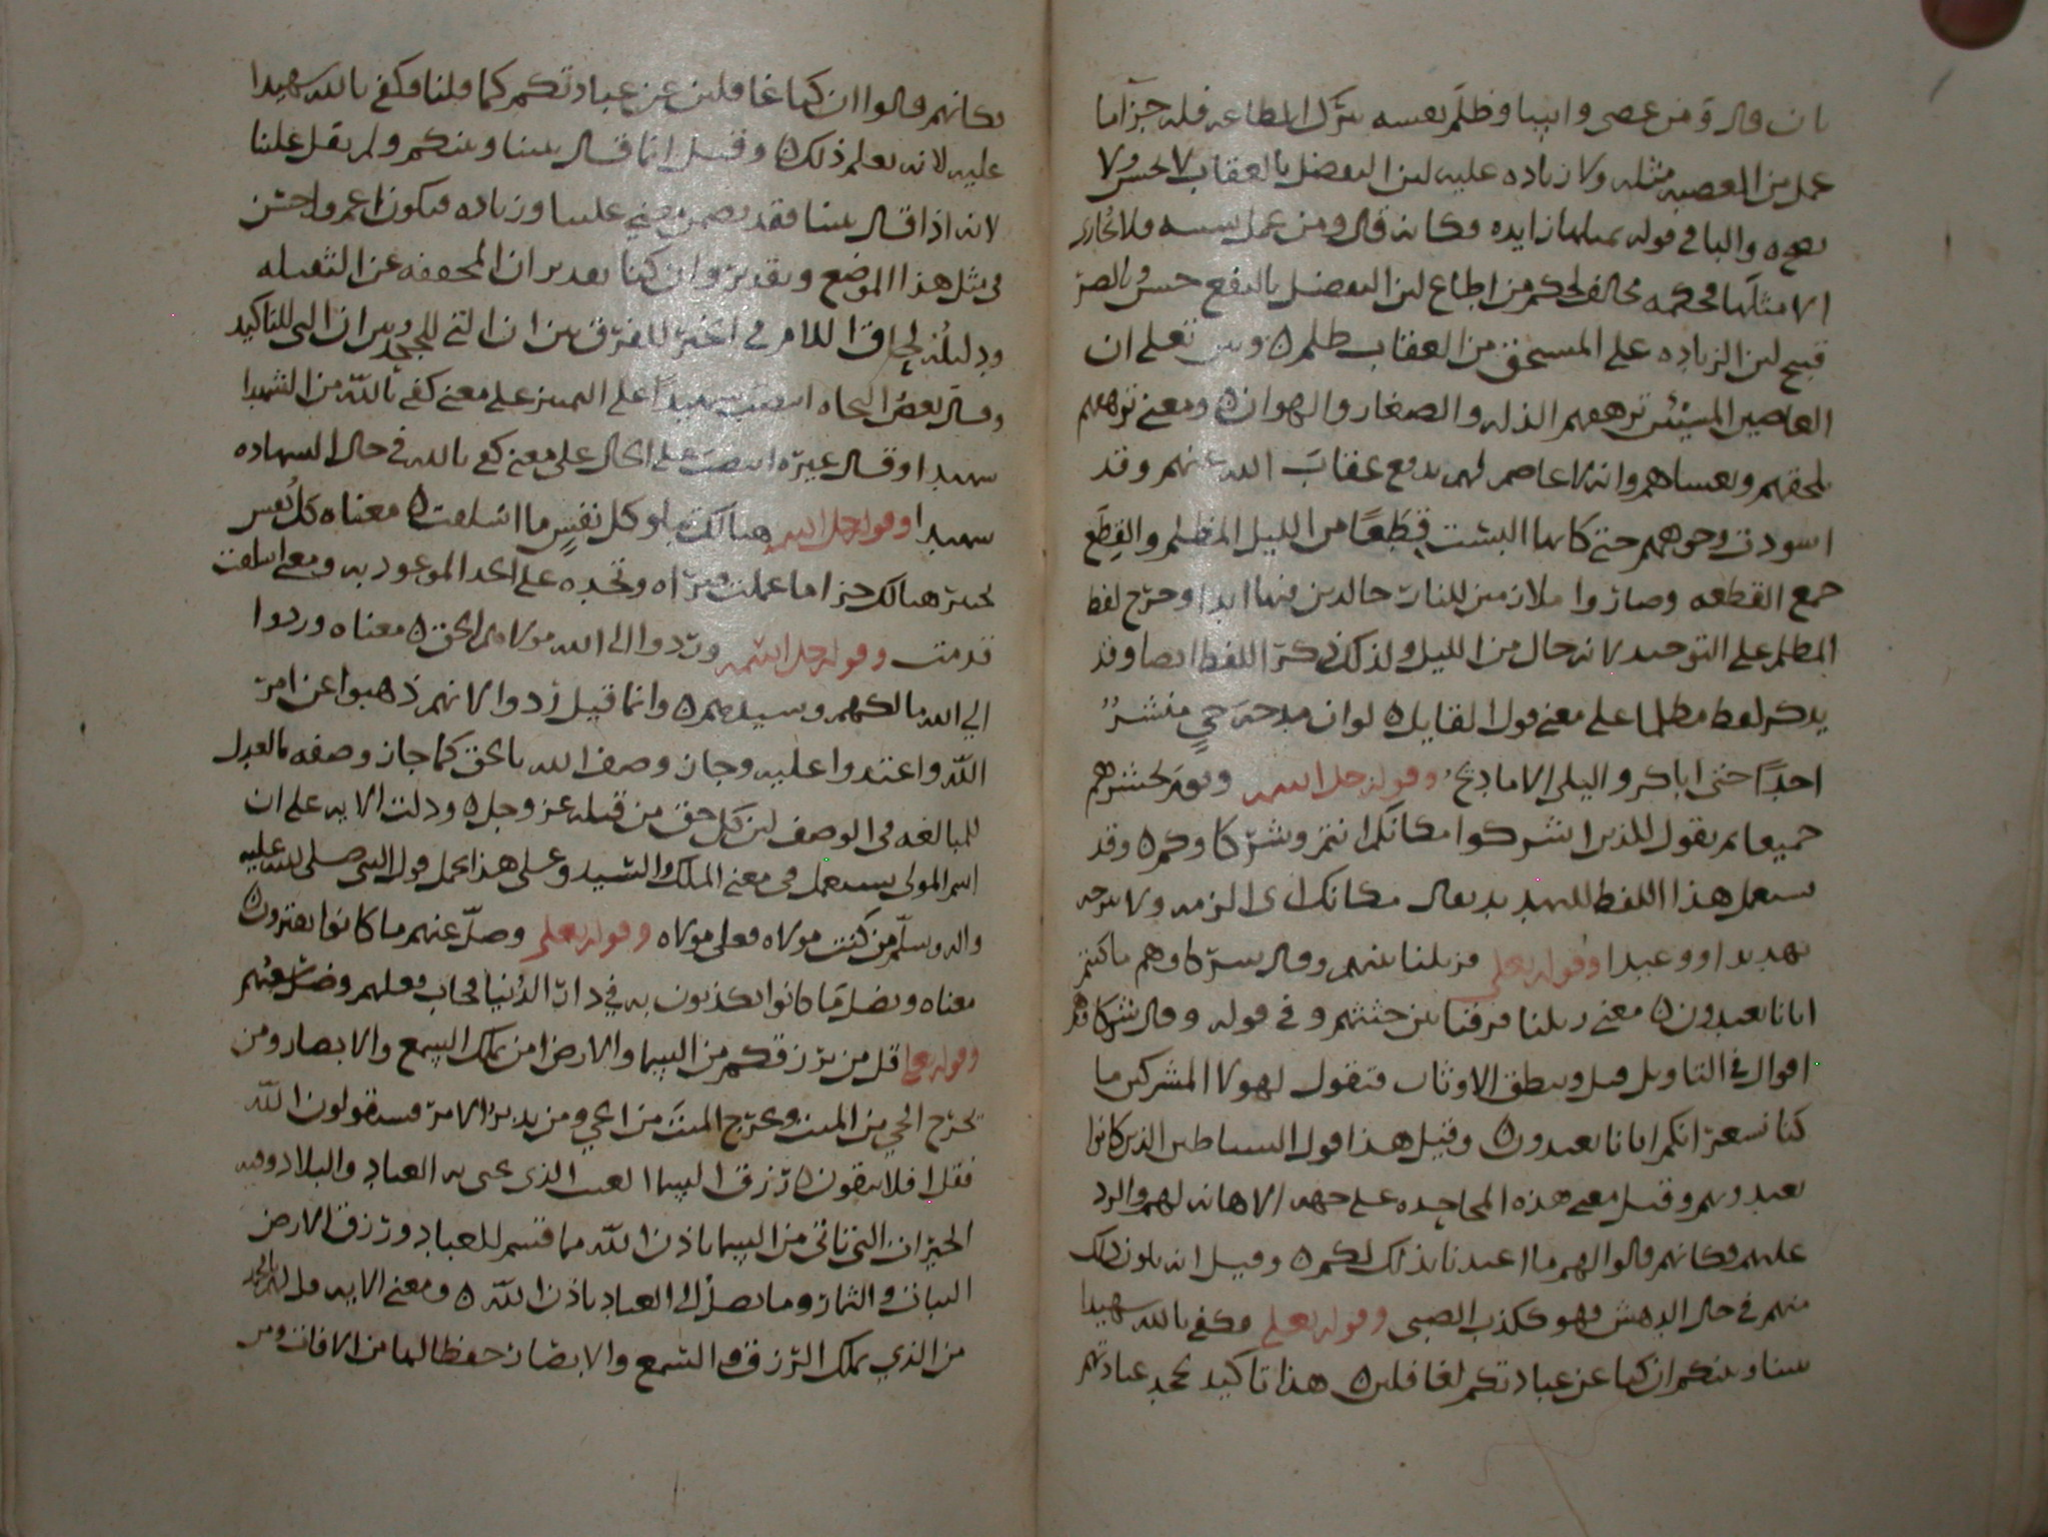 بان قال ومن عصى واسا وظلم نفسه بترك الطاعه فله جزآ ما
عمل من المعصيه مثله ولا زياده عليه لان التفضل بالعقاب لا يحسن ولا
والبا في قوله بمثلها زايده فكانه قال ومن عمل سيئه فلا يجازى
الا مثلها فحكمه مخالف لحكم من اطاع لان التفضل بالنفع حسن وبالضر
قبيح لان الزياده على المستحق من العقاب ظلم ٥ وبين تعلى ان
العاصين المسيئين ترهقهم الذله والصغار والهوان ٥ ومعنى ترهقهم
تلحقهم وتغشاهم وانه لا عاصم لهم يدفع عقاب الله عنهم وقد
اسودت وجوههم حتى كانها البست قطعا من الليل المظلم والقطع
جمع القطعه وصاروا ملازمين للنار خالدين فيها ابدا وخرج لفظ
المظلم على التوحيد لانه حال من الليل ولذلك ذكر اللفظ ايضا وقد
يذكر لفظ مظلما على معنى قول القايل ٥ لو ان مدحة حي منشر
احدا احيى اباكر واليلى الاماديح وقوله جل اسمه ويوم نحشرهم
جميعا ثم نقول للذين اشركوا مكانكم انتم وشركاوكم ٥ وقد
يستعمل هذا اللفظ للتهديد يقال مكانك اى الزمه ولا تبرحه
تهديدا ووعيدا وقوله تعلى فزيلنا بينهم وقال شركاوهم ما كنتم
ايانا تعبدون ٥ معنى زيلنا فرقنا بين جثثهم وفي قوله وقال شركاوهم
اقوال في التاويل قيل وينطق الاوثان فتقول لهولا المشركين ما
كنا نشعر انكم ايانا تعبدون ٥ وقيل هذا قول الشياطين الذين كانوا
يعبدونهم وقيل معنى هذه المجاحده على جهة الاهانه لهم والرد
عليهم فكانهم قالوا لهم ما اعتدنا بذلك لكم ٥ وقيل انه يكون ذلك
منهم في حال الدهش فهو ككذب الصبى وقوله تعلى فكفى بالله شهيدا
بيننا وبينكم ان كنا عن عبادتكم لغافلين ٥ هذا تاكيد لجحد عبادتهم
فكانهم قالوا ان كنا غافلين عن عبادتكم كما قلنا فكفى بالله شهيدا
عليه لانه يعلم ذلك ٥ وقيل انما قال بيننا وبينكم ولم يقل علينا
لانه اذا قال بيننا فقد تضمن معنى علينا وزياده فيكون اعم واحسن
في مثل هذا الموضع وتقدير وان كنا تقدير ان المخففه عن الثقيله
ودليله لحاق اللام في الخبر للفرق بين ان التى للجحد وبين ان التى للتاكيد
وقال بعض النحاه انتصب شهيدا على التمييز على معنى كفى بالله من الشهدا
شهيدا وقال غيره انتصب على الحال على معنى كفى بالله في حال الشهاده
شهيدا وقوله جل اسمه هنالك تبلو كل نفس ما اسلفت ٥ معناه كل نفس
تختبر هنالك جزا ما عملت فتراه وتجده على الحد الموعود به ومعنى اسلفت
قدمت وقوله جل اسمه وردوا الى الله مولاهم الحق ٥ معناه وردوا
الى الله مالكهم وسيدهم ٥ وانما قيل ردوا لانهم ذهبوا عن امر
الله واعتدوا عليه وجاز وصف الله بالحق كما جاز وصفه بالعدل
للمبالغه في الوصف لان كل حق من قبله عز وجل ٥ ودلت الايه على ان
اسم المولى يستعمل في معنى الملك والسيد وعلى هذا يحمل قول النبي صلى الله عليه
واله وسلم من كنت مولاه فعلى مولاه وقوله تعلى وضل عنهم ما كانوا يفترون ٥
معناه وبضل ما كانوا يكذبون به في دار الدنيا فخاب فعلهم وضل سعيهم
وقوله تعلى قل من يرزقكم من السما والارض امن يملك السمع والابصار ومن
يخرج الحى من الميت ويخرج الميت من الحي ومن يدبر الامر فسيقولون الله
فقل افلا تتقون ٥ رزق السما الغيث الذى يحى به العباد والبلاد وفيه
الخيرات التى تاتى من السما باذن الله مما قسم للعباد ورزق الارض
النبات والثمار وما يصل الى العباد باذن الله ٥ ومعنى الايه قل
من الذي يملك الرزق والسمع والابصار حفظا لها من الافات ومن